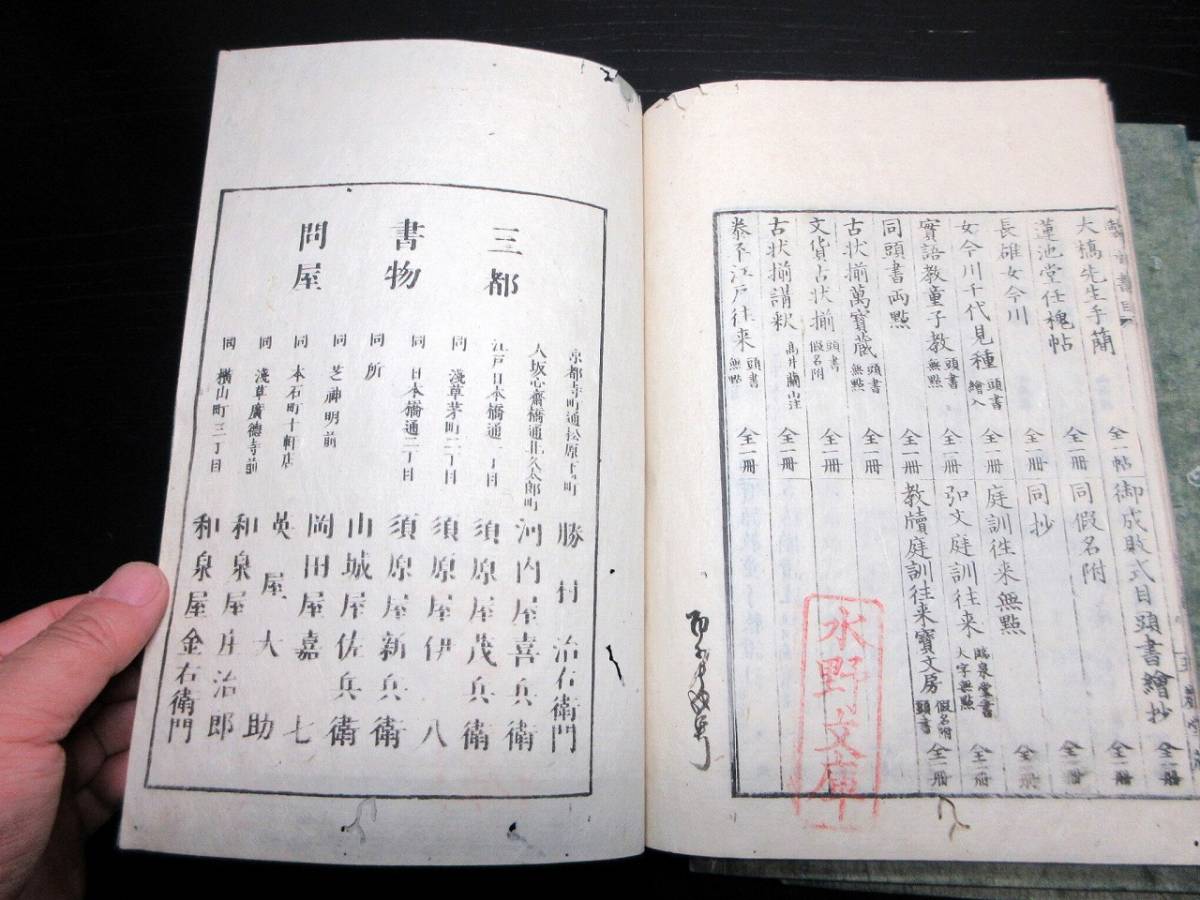 大橋先生手蘭 全一帖
蓮池堂任槐帖 全一冊
長雄女今川 全一冊
女今川千代見種 頭書 繪入 全一冊
實語教童子教 頭書 無點 全一冊
同頭書両點 全一冊
古状揃萬寶蔵 頭書 無點 全一冊
文貨古状揃 頭書 假名附 全一冊
古状揃講釈 高井蘭山注 全一冊
泰平江戸往来 頭書 無點 全一冊
御成敗式目頭書繪抄 全一冊
同假名附 全一冊
同抄 全一冊
庭訓往来無點 全一冊
弘文庭訓往来 臨泉堂書 大字無點 全一冊
教牘庭訓往来寶文房 假名附 頭書 全一冊
水野文庫
三都
書物
問屋
京都寺町通松原下町 勝村治右衛門
大坂心齋橋通北久太郎町 河内屋喜兵衛
江戸日本橋通一丁目 須原屋茂兵衛
同 淺草茅町二丁目 須原屋伊八
同 日本橋通二丁目 須原屋新兵衛
同所 山城屋佐兵衛
同 芝神明前 岡田屋嘉七
同 本石町十軒店 英屋大助
同 淺草廣徳寺前 和泉屋庄治郎
同 横山町三丁目 和泉屋金右衛門